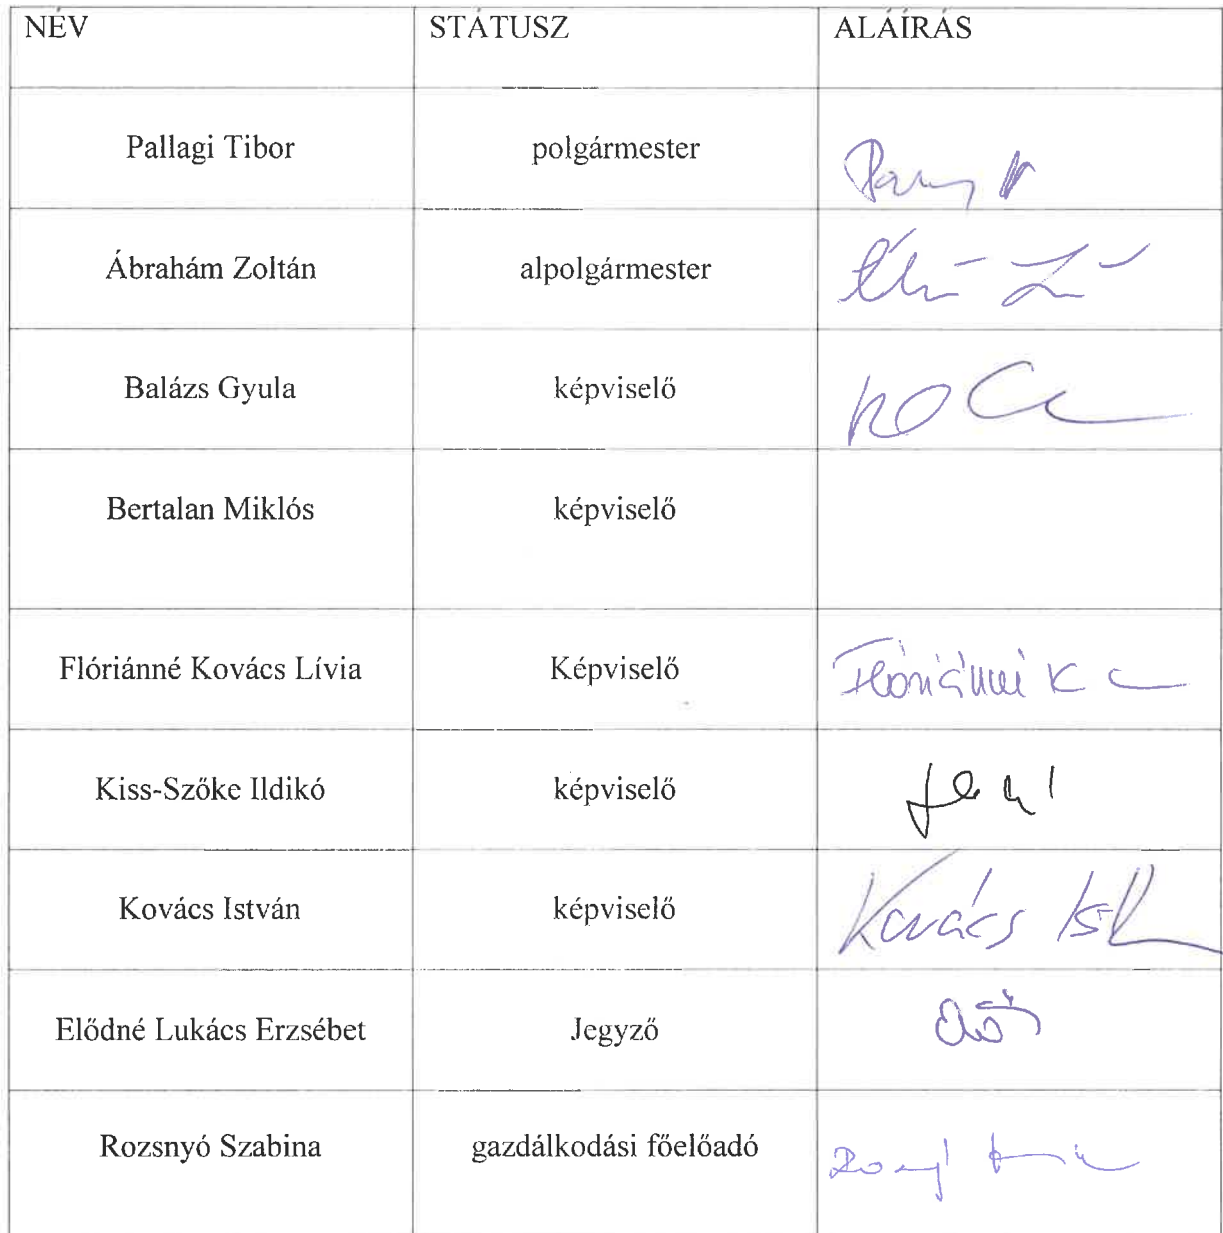 NÉV STÁTUSZ ALÁÍRÁS
Pallagi Tibor polgármester
Ábrahám Zoltán alpolgármester
Balázs Gyula képviselő
Bertalan Miklós képviselő
Flóriánné Kovács Lívia Képviselő Flóriánné K
Kiss-Szőke Ildikó képviselő
Kovács István képviselő Kovács
Elődné Lukács Erzsébet Jegyző
Rozsnyó Szabina gazdálkodási főelőadó